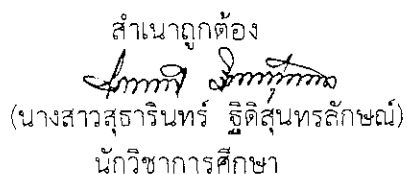 สำเนาถูกต้อง
(นางสาวสุธารินทร์ ฐิติสุนทรลักษณ์)
นักวิชาการศึกษา